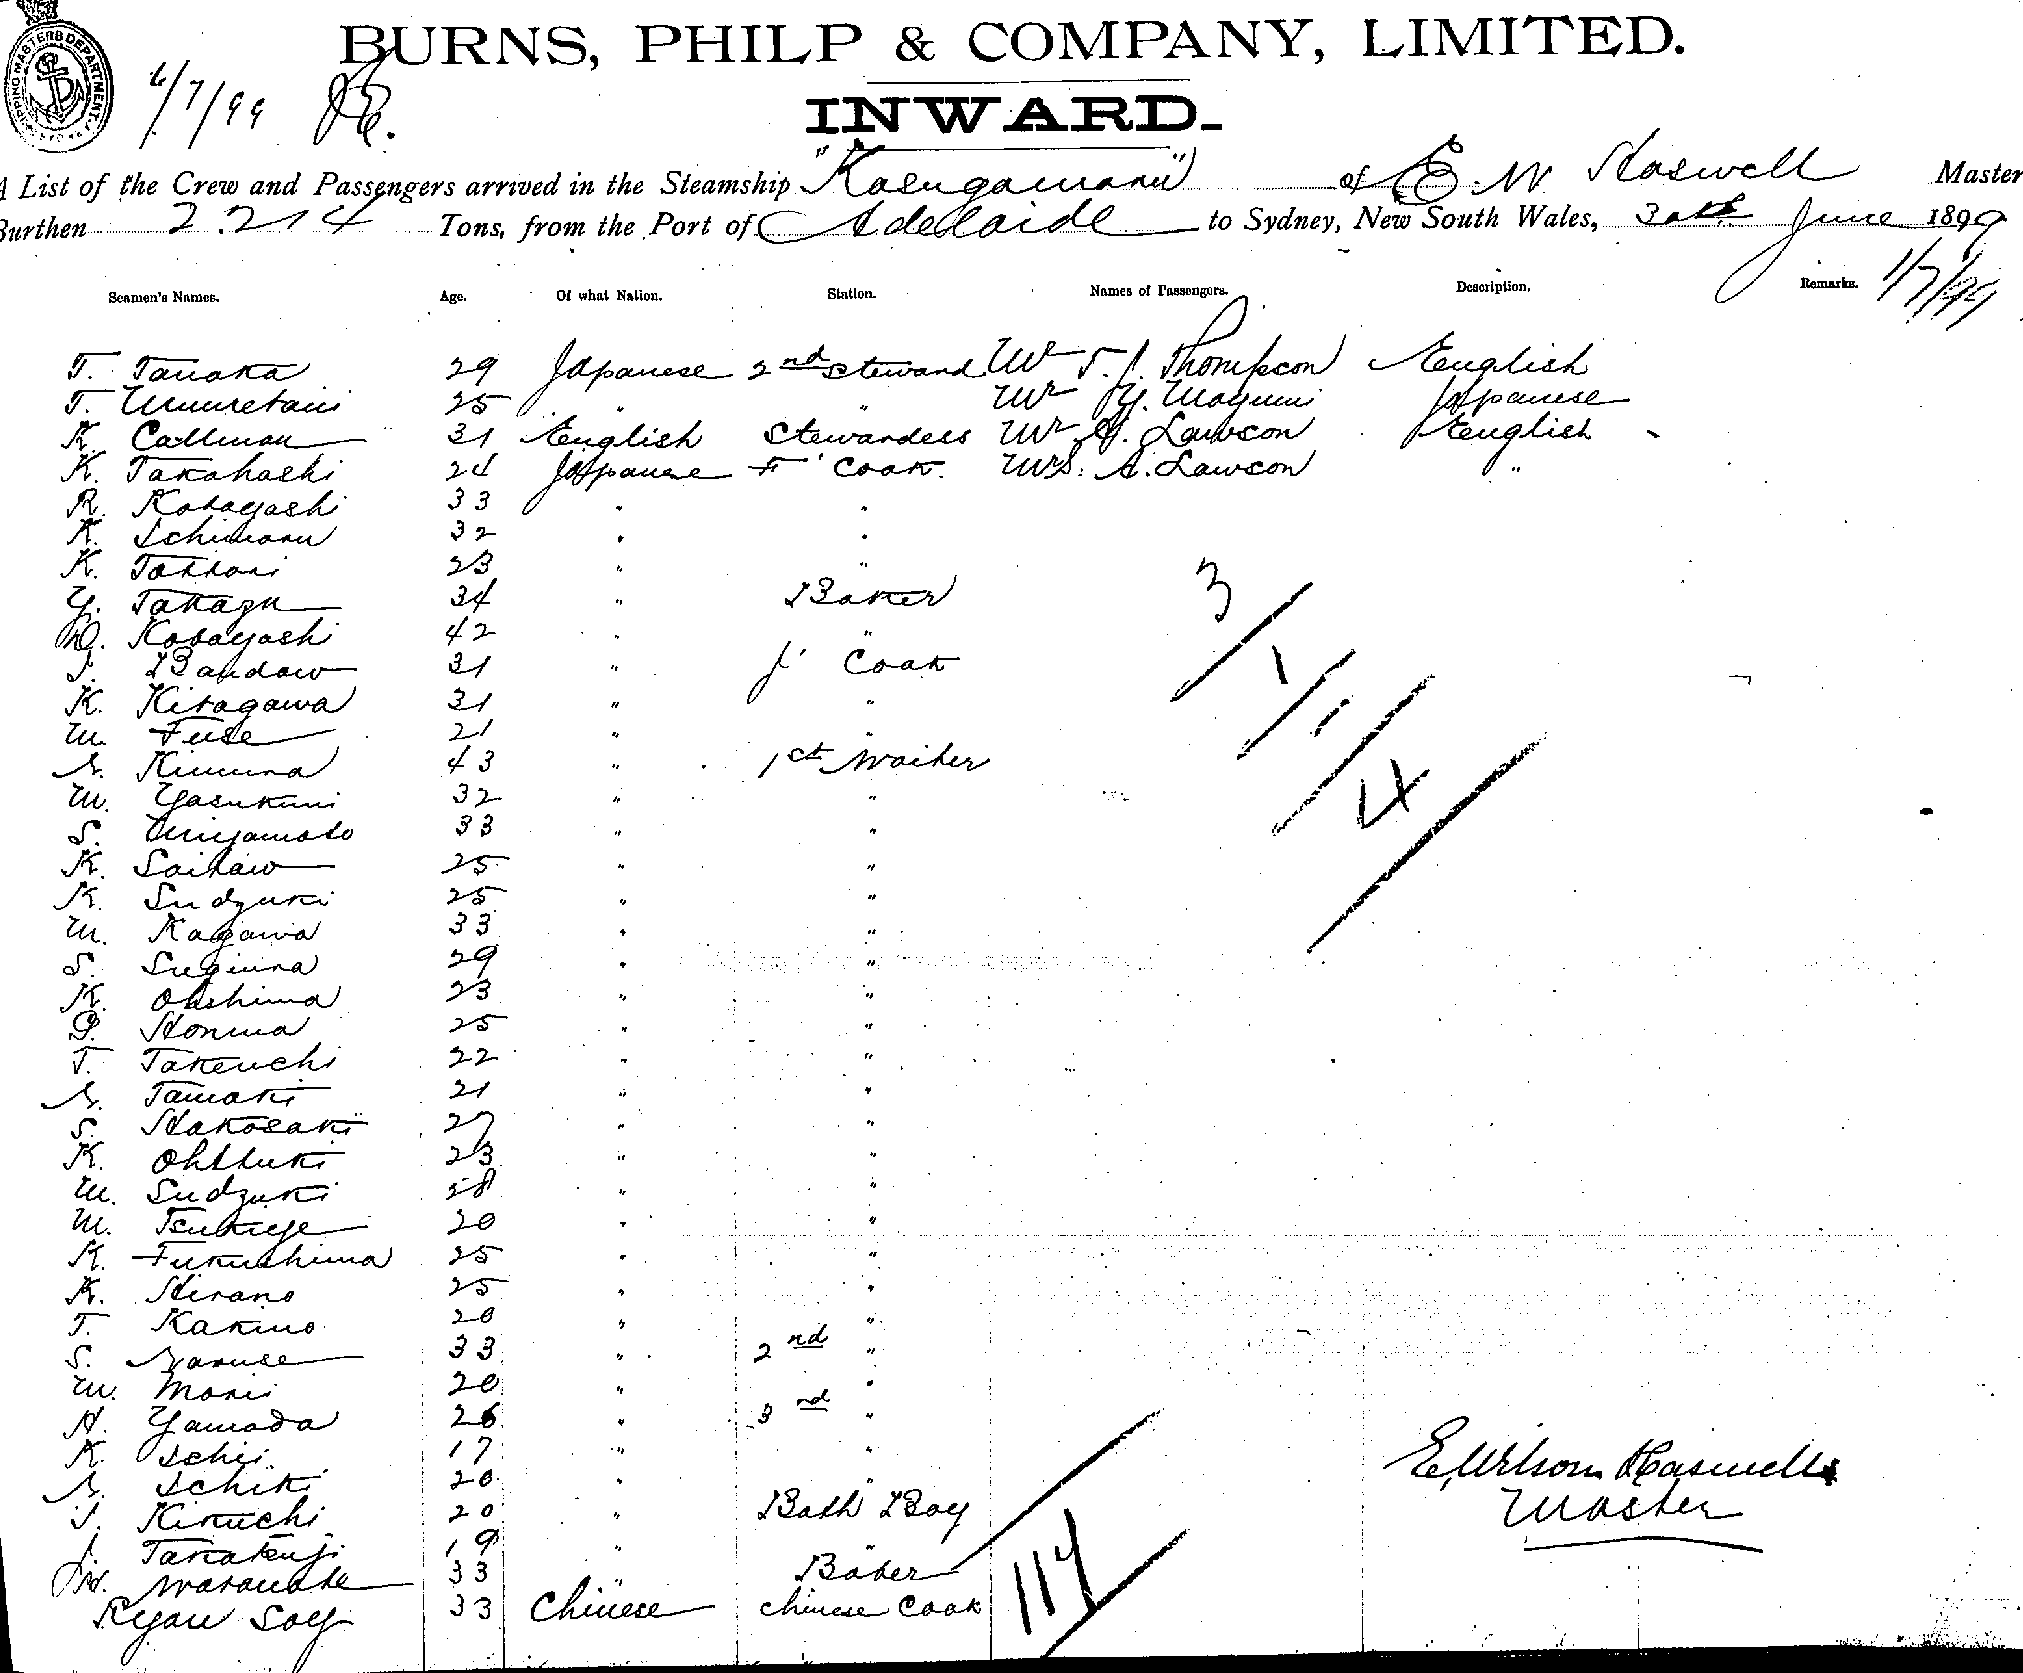 SHIPPING MASTERS DEPARTMENT
BURNS, PHILP & COMPANY, LIMITED.
6/7/99
INWARD.
A List of the Crew and Passengers arrived in the Steamship "Kasugamaru" of E. W Haswell Master
Burthen 2.214 Tons, from the Port of Adelaide to Sydney, New South Wales, 30th June 1899
1/7/99
Seamen's Names. Age. Of what Nation. Station. Names of Passengers. Description. Remarks.
T. Tanaka 29 Japanese 2nd Steward Mr T. J. Thompson English
T. Umretani 25 " " Mr Y. Mayumi Japanese
K. Callman 31 English Stewardess Mr A. Lawson English
K. Takahashi 24 Japanese F' Cook. Mrs. A. Lawson "
R. Kobayashi 33 " "
K. Ichimaru 32 " "
K. Tattori 23 " "
Y. Takagu 34 " Baker
Kobayashi 42 " "
Bandow 31 " J' Cook
K. Kitagawa 31 " "
M. Fuse 21 " "
N. Kimura 43 " 1st Waiter
M. Yasukuni 32 " "
S. Miyamoto 33 " "
K. Saitaw 25 " "
K. Sudzuki 25 " "
M. Kagawa 33 " "
S. Sugiura 29 " "
K. Ohshima 23 " "
Honma 25 " "
T. Takeuchi 22 " "
N. Tamaki 21 " "
S. Hakosaki 27 " "
K. Ohtsuki 23 " "
M. Sudzuki 28 " "
M. Tsukuje 20 " "
K. Fukushima 25 " "
K. Hirano 25 " "
T. Kakino 20 " "
S. Naruse 33 " 2nd "
M. Mori 20 " "
H. Yamada 26 " 3rd "
K. Ichii 17 " "
N. Ichiki 20 " "
Kikuchi 20 " Bath Boy
J. Takatsuji 19 " "
W. Watanabe 33 " Baker
Ryan Soey 33 Chinese Chinese Cook
3/1/1/4/
117
E. Wilson Haswell
Master